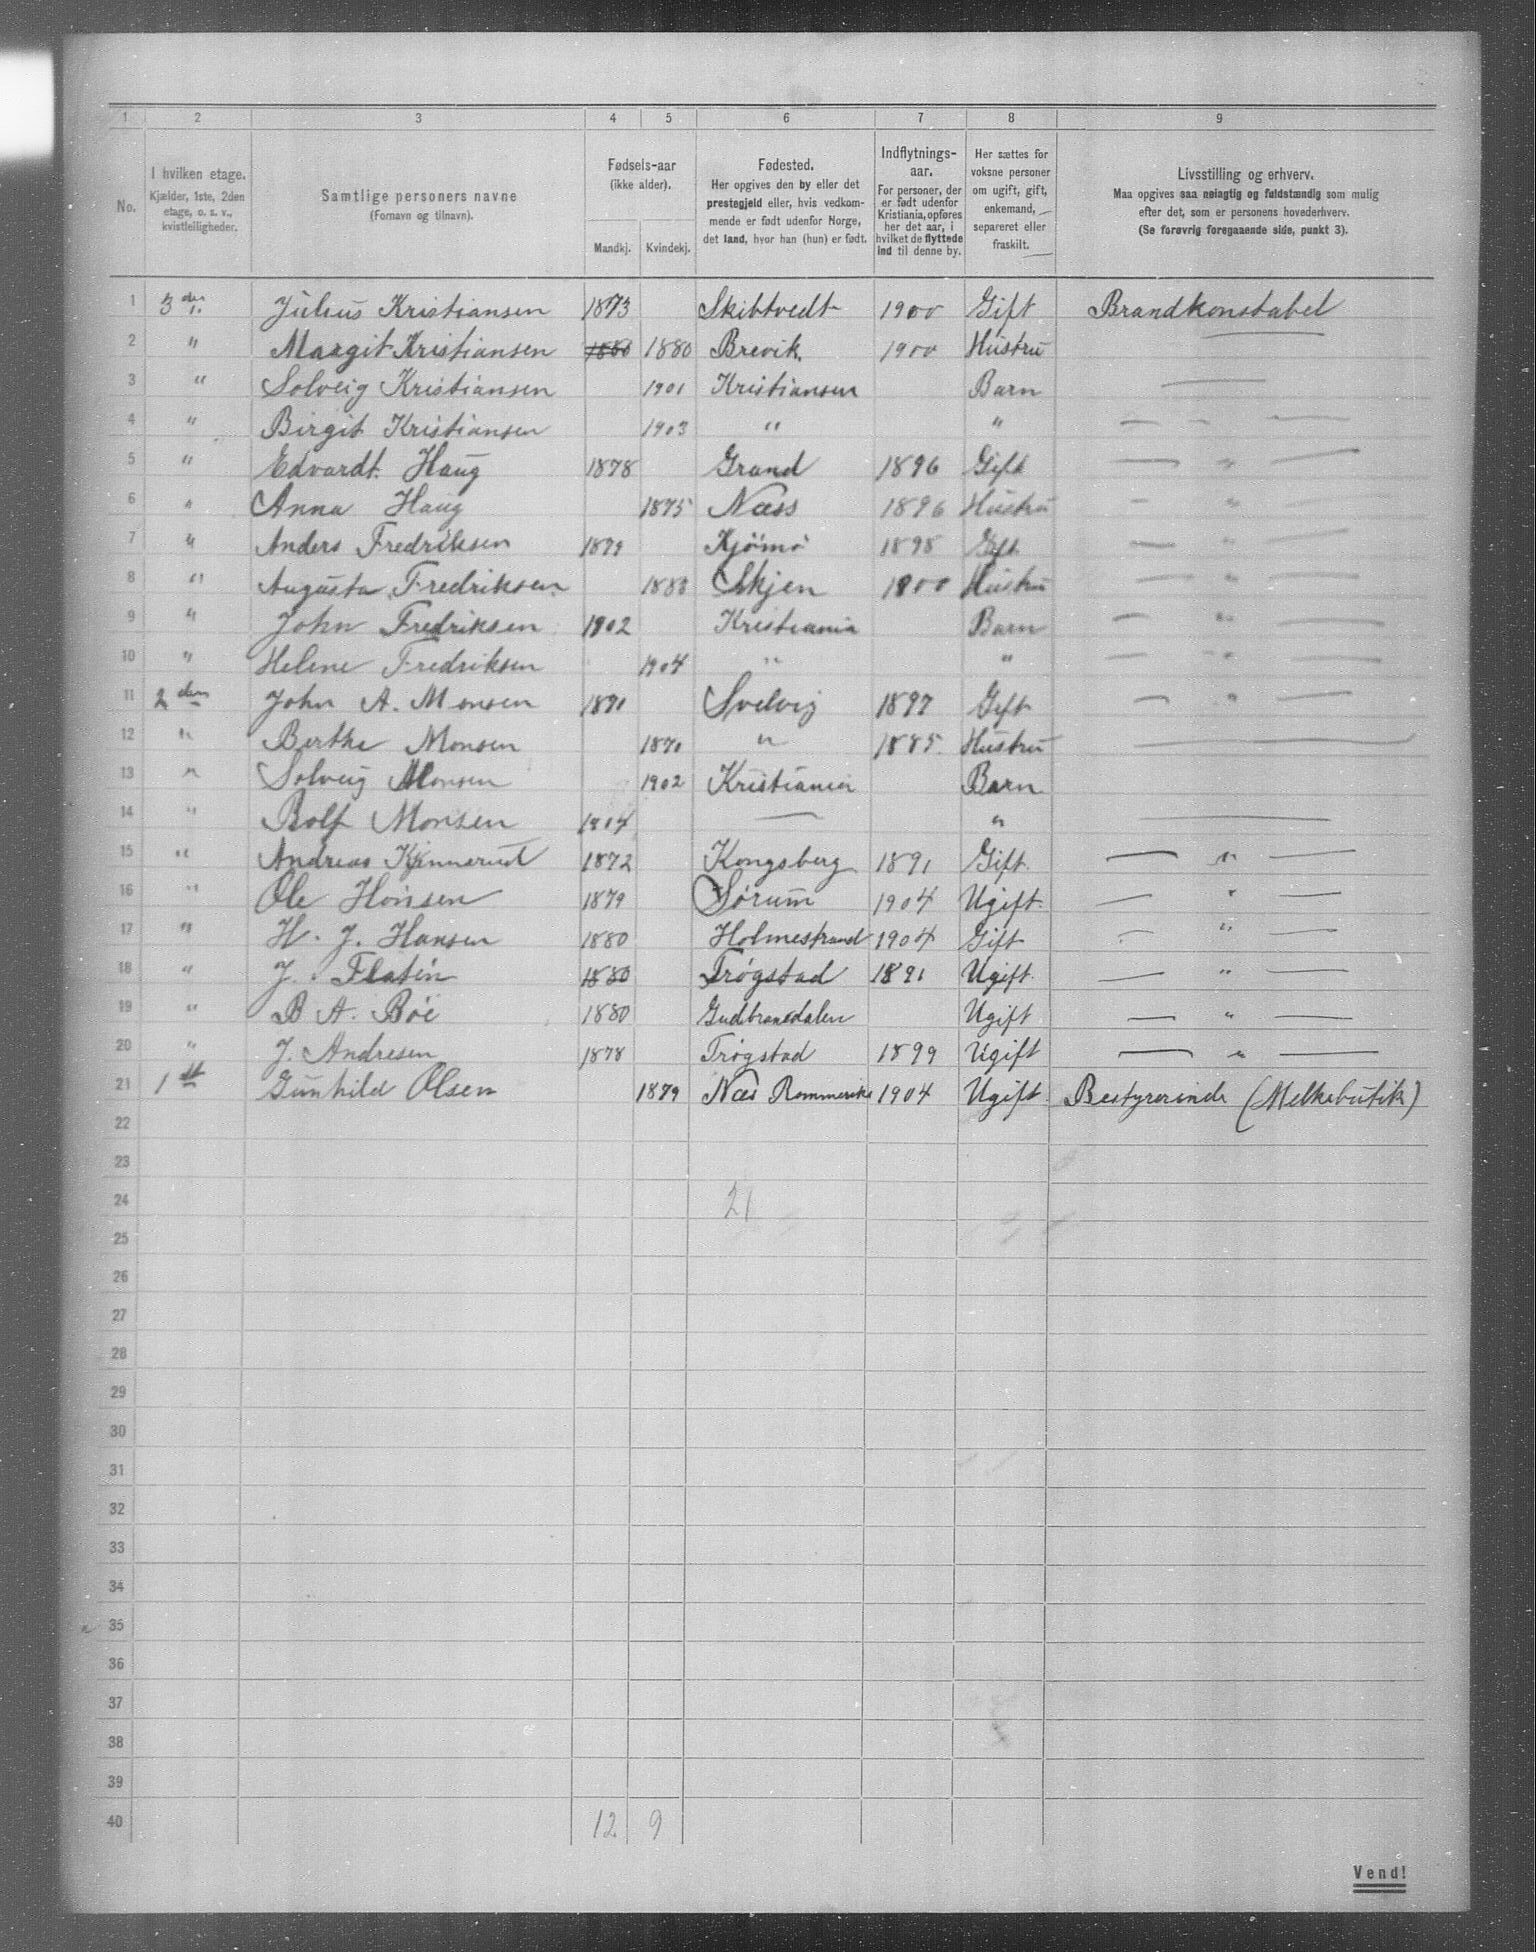 1 2 3 4 5 6 7 8 9
No.
I hvilken etage.
Kjælder, 1ste, 2den
etage, o. s. v.,
kvistleiligheder.
Samtlige personers navne
(Fornavn og tilnavn).
Fødsels-aar
(ikke alder).
Mandkj. Kvindekj.
Fødested.
Her opgives den by eller det
prestegjeld eller, hvis vedkom-
mende er født udenfor Norge,
det land, hvor han (hun) er født.
Indflytnings-
aar.
For personer, der
er født udenfor
Kristiania, opføres
her det aar, i
hvilket de flyttede
ind til denne by.
Her sættes for
voksne personer
om ugift, gift,
enkemand,
separeret eller
fraskilt.
Livsstilling og erhverv.
Maa opgives saa nøiagtig og fuldstændig som mulig
efter det, som er personens hovederhverv.
(Se forøvrig foregaaende side, punkt 3).
1 3 den Julius Kristiansen 1873 Skibtvedt 1900 Gift Brandkonstabel
2 " Margit Kristiansen 1880 1880 Brevik. 1900 Hustru —
3 " Solveig Kristiansen 1901 Kristiansen Barn —
4 " Birgit Kristiansen 1903 " " — — —
5 " Edvardt. Haug 1878 Grand 1896 Gift — " —
6 " Anna Haug 1875 Næss 1896 Hustru — " —
7 " Anders Fredriksen 1879 Kjömö 1898 Gift — " —
8 " Augusta Fredriksen 1880 Skjen 1900 Hustru — " —
9 " John Fredriksen 1902 Kristiania Barn — " —
10 " Helene Fredriksen 1904 " " — " —
11 2 den John A. Monsen 1870 Svelvig 1897 Gift — " —
12 " Berthe Monsen 1870 " 1885. Hustru —
13 " Solveig Monsen 1902 Kristiania Barn
14 " Rolf Monsen 1904 — " —
15 " Andreas 1872 Kongsberg 1891 Gift. — " —
16 " Ole Hansen 1879 Sørum 1904 Ugift. — " —
17 " H. J. Hansen 1880 Holmestrand 1904 Gift — " —
18 " J. Flatin 1880 Trøgstad 1891 Ugift. — " —
19 " B A. Böe 1880 Gudbransdalen Ugift — " —
20 " J. Andresen 1878 Trøgstad 1899 Ugift — " —
21 1 st Gunhild Olsen 1879 Næs Rommerike 1904 Ugift. Bestyrerinde (Melkebutik)
22
23
24 21
25
26
27
28
29
30
31
32
33
34
35
36
37
38
39
40 12 9
Vend!